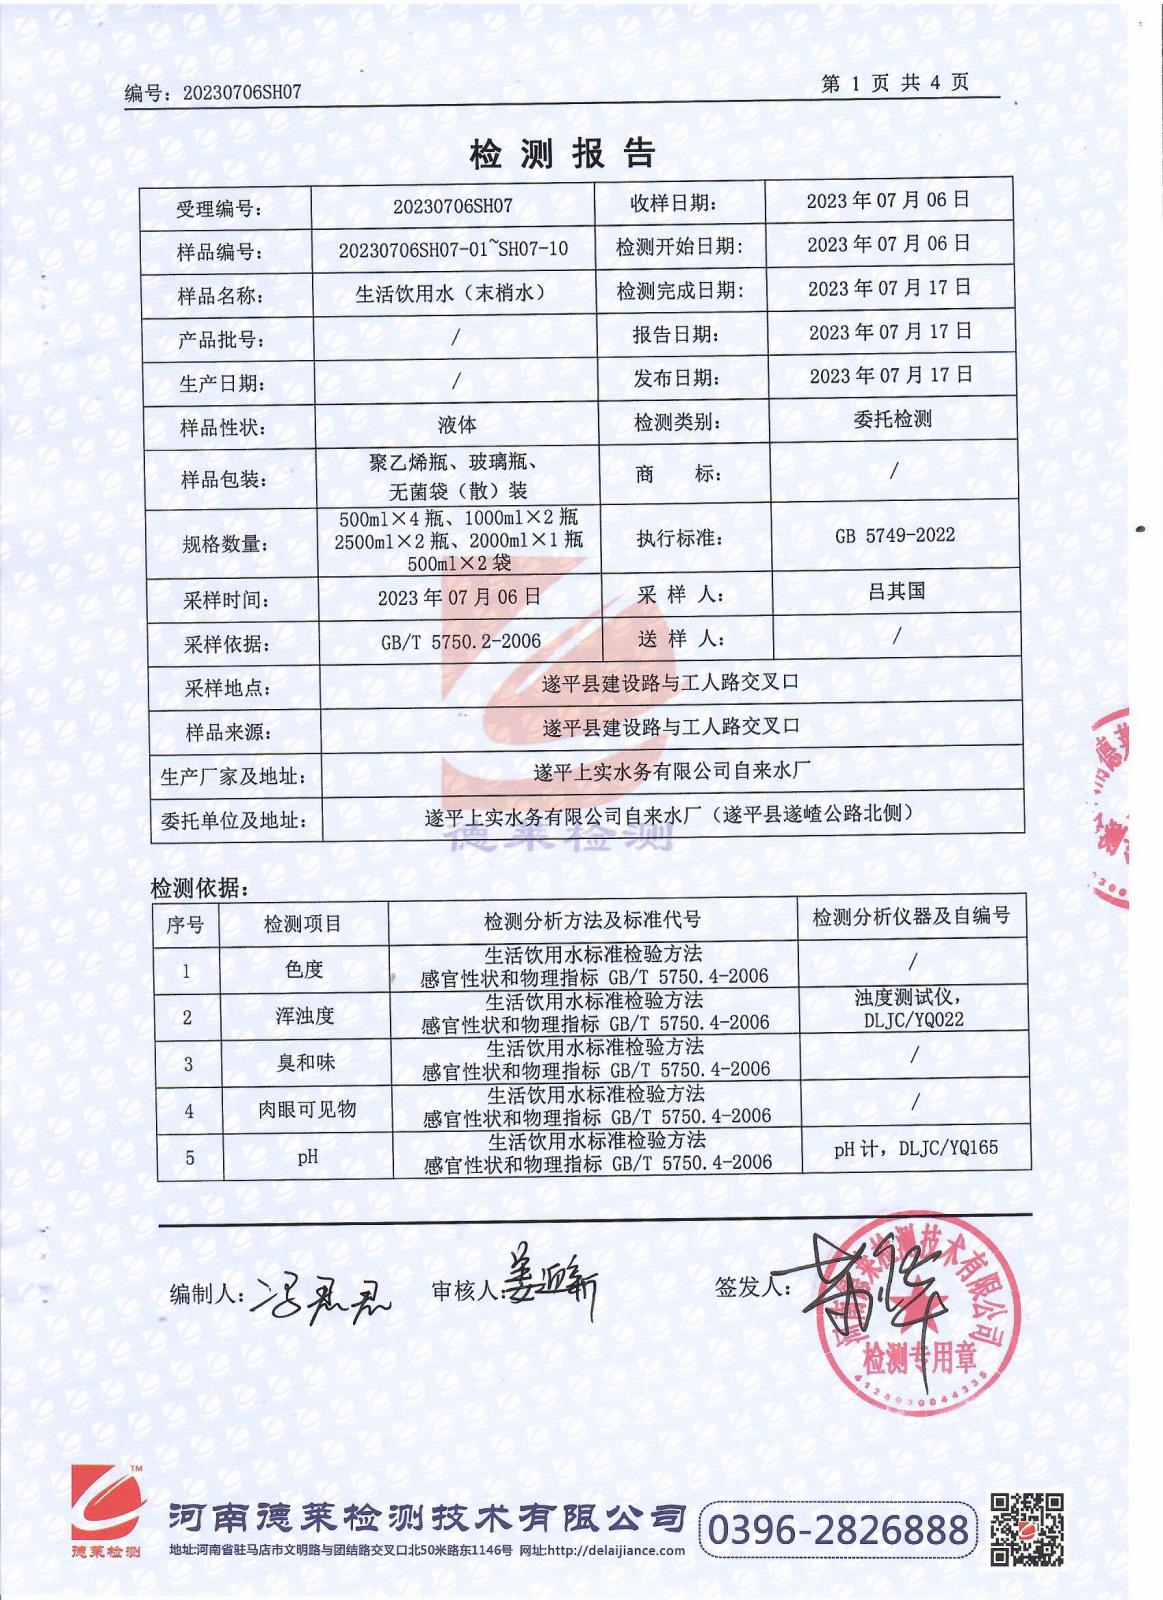 编号：20230706SH07
第 1 页 共 4 页
检 测 报 告
受理编号： 20230706SH07 收样日期： 2023 年 07 月 06 日
样品编号： 20230706SH07-01~SH07-10 检测开始日期： 2023 年 07 月 06 日
样品名称： 生活饮用水（末梢水） 检测完成日期： 2023 年 07 月 17 日
产品批号： / 报告日期： 2023 年 07 月 17 日
生产日期： / 发布日期： 2023 年 07 月 17 日
样品性状： 液体 检测类别： 委托检测
样品包装： 聚乙烯瓶、玻璃瓶、
无菌袋（散）装 商 标： /
规格数量： 500ml×4 瓶、1000ml×2 瓶
2500ml×2 瓶、2000ml×1 瓶
500ml×2 袋 执行标准： GB 5749-2022
采样时间： 2023 年 07 月 06 日 采 样 人： 吕其国
采样依据： GB/T 5750.2-2006 送 样 人： /
采样地点： 遂平县建设路与工人路交叉口
样品来源： 遂平县建设路与工人路交叉口
生产厂家及地址： 遂平上实水务有限公司自来水厂
委托单位及地址： 遂平上实水务有限公司自来水厂（遂平县遂嵖公路北侧）
德莱检测
检测依据：
序号 检测项目 检测分析方法及标准代号 检测分析仪器及自编号
1 色度 生活饮用水标准检验方法
感官性状和物理指标 GB/T 5750.4-2006 /
2 浑浊度 生活饮用水标准检验方法
感官性状和物理指标 GB/T 5750.4-2006 浊度测试仪，
DLJC/YQ022
3 臭和味 生活饮用水标准检验方法
感官性状和物理指标 GB/T 5750.4-2006 /
4 肉眼可见物 生活饮用水标准检验方法
感官性状和物理指标 GB/T 5750.4-2006 /
5 pH 生活饮用水标准检验方法
感官性状和物理指标 GB/T 5750.4-2006 pH 计，DLJC/YQ165
编制人： 冯君君 审核人： 姜迎新 签发人：
河南德莱检测技术有限公司
检测专用章
4128030044335
TM
德莱检测
河南德莱检测技术有限公司
地址:河南省驻马店市文明路与团结路交叉口北50米路东1146号 网址:http://delaijiance.com
0396-2826888